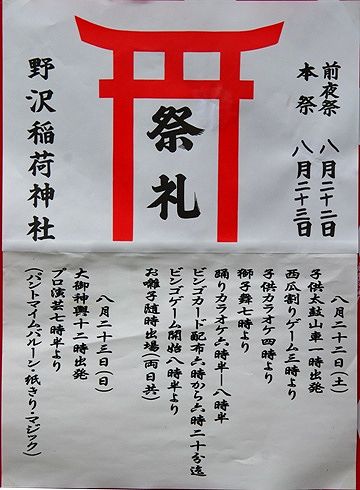 前夜祭 八月二十二日
本祭 八月二十三日
祭礼
野沢稲荷神社
八月二十二日(土)
子供太鼓山車一時出発
西瓜割りゲーム三時より
子供カラオケ四時より
獅子舞七時より
踊りカラオケ六時半―八時半
ビンゴカード配布六時から六時二十分迄
ビンゴゲーム開始八時半より
お囃子随時出場(両日共)
八月二十三日(日)
大御神輿十二時出発
プロ演芸七時半より
(パントマイムバルーン・紙きり・マジック)